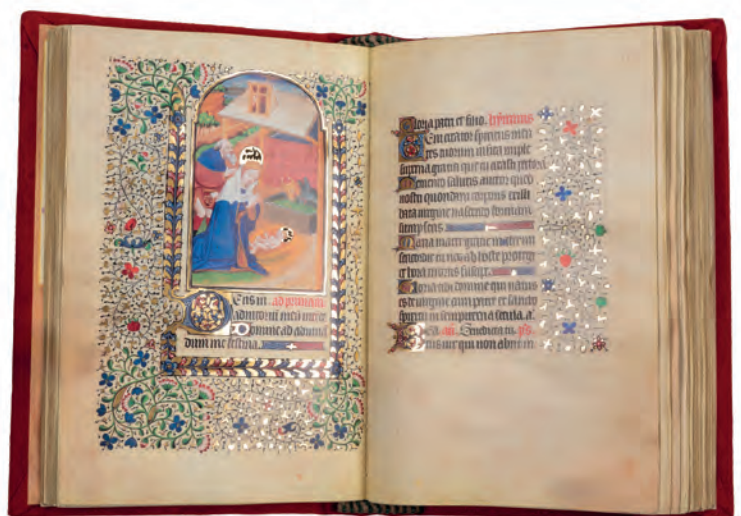 Deus in. ad primam
adiutorium meum intende
Domine ad adiuuan
dum me festina.
Gloria patri et filio. hymnus
Ueni creator spiritus men
tes tuorum uisita imple
superna gratia que tu creasti pectora
Memento salutis auctor quod
nostri quondam corporis ex illi
bata uirgine nascendo formam
sumpseris
Maria mater gratie mater mi
sericordie tu nos ab hoste protege
et hora mortis suscipe.
Gloria tibi domine qui natus
es de uirgine cum patre et sancto
spiritu in sempiterna secula. a.
an. Benedicta tu. ps.
Beatus uir qui non abiit in